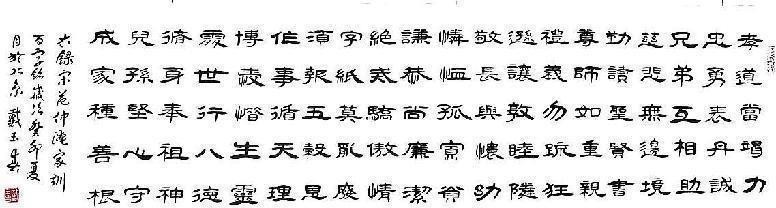 孝道當竭力
忠勇表丹誠
兄弟互相助
慈悲無邊境
勤讀聖賢書
尊師如重親
禮義勿疏狂
遜讓敦睦隣
敬長與懷幼
憐恤孤寡貧
謙恭尚廉潔
絕戒驕傲情
字紙莫亂廢
須報五穀恩
作事循天理
博愛惜生靈
處世行八德
脩身奉祖神
兒孫堅心守
成家種善根
錄宋范仲淹家訓
百字銘歲次癸卯夏
月於北京戴玉